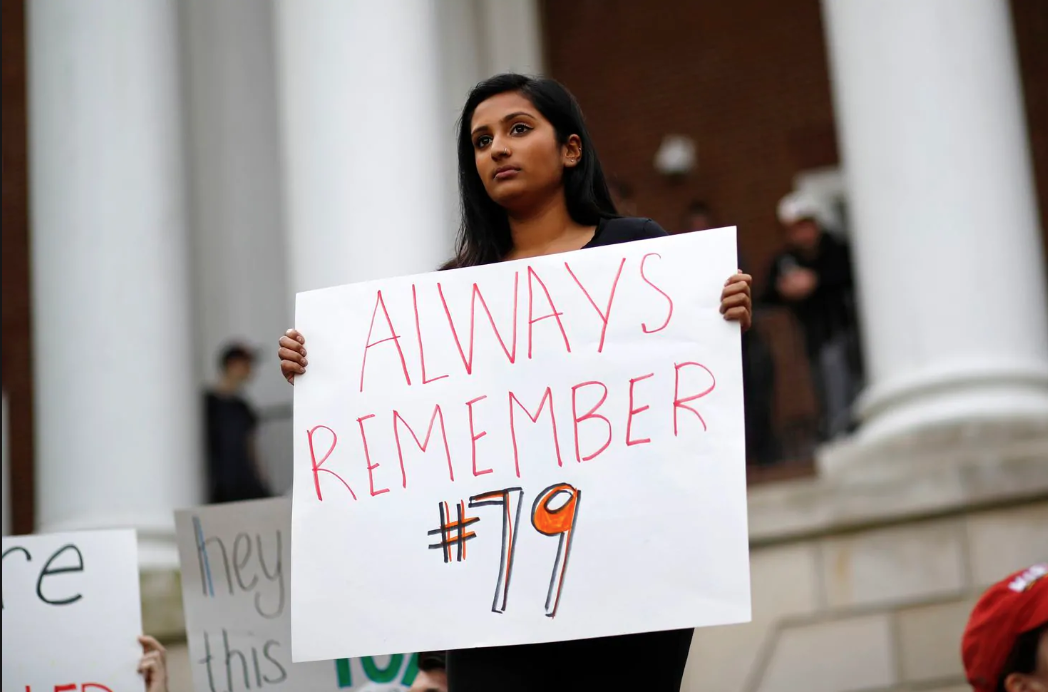 ALWAYS
REMEMBER
#79
re
hey
this